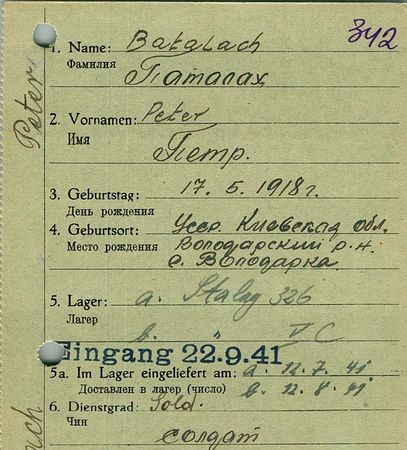 342
1. Name: Batalach
Фамилия
Паталах
2. Vornamen: Peter
Имя
Петр.
3. Geburtstag: 17. 5. 1918г.
День рождения
4. Geburtsort: Усср. Киевская обл.
Место рождения Володарский р-н.
с. Володарка
5. Lager: a. Stalag 326
Лагер
b. " V C
Eingang 22.9.41
5a. Im Lager eingeliefert am: a. 12.7.41
Доставлен в лагер (число) b. 12.8.41
6. Dienstgrad: Sold.
Чин
солдат
Peter
ach